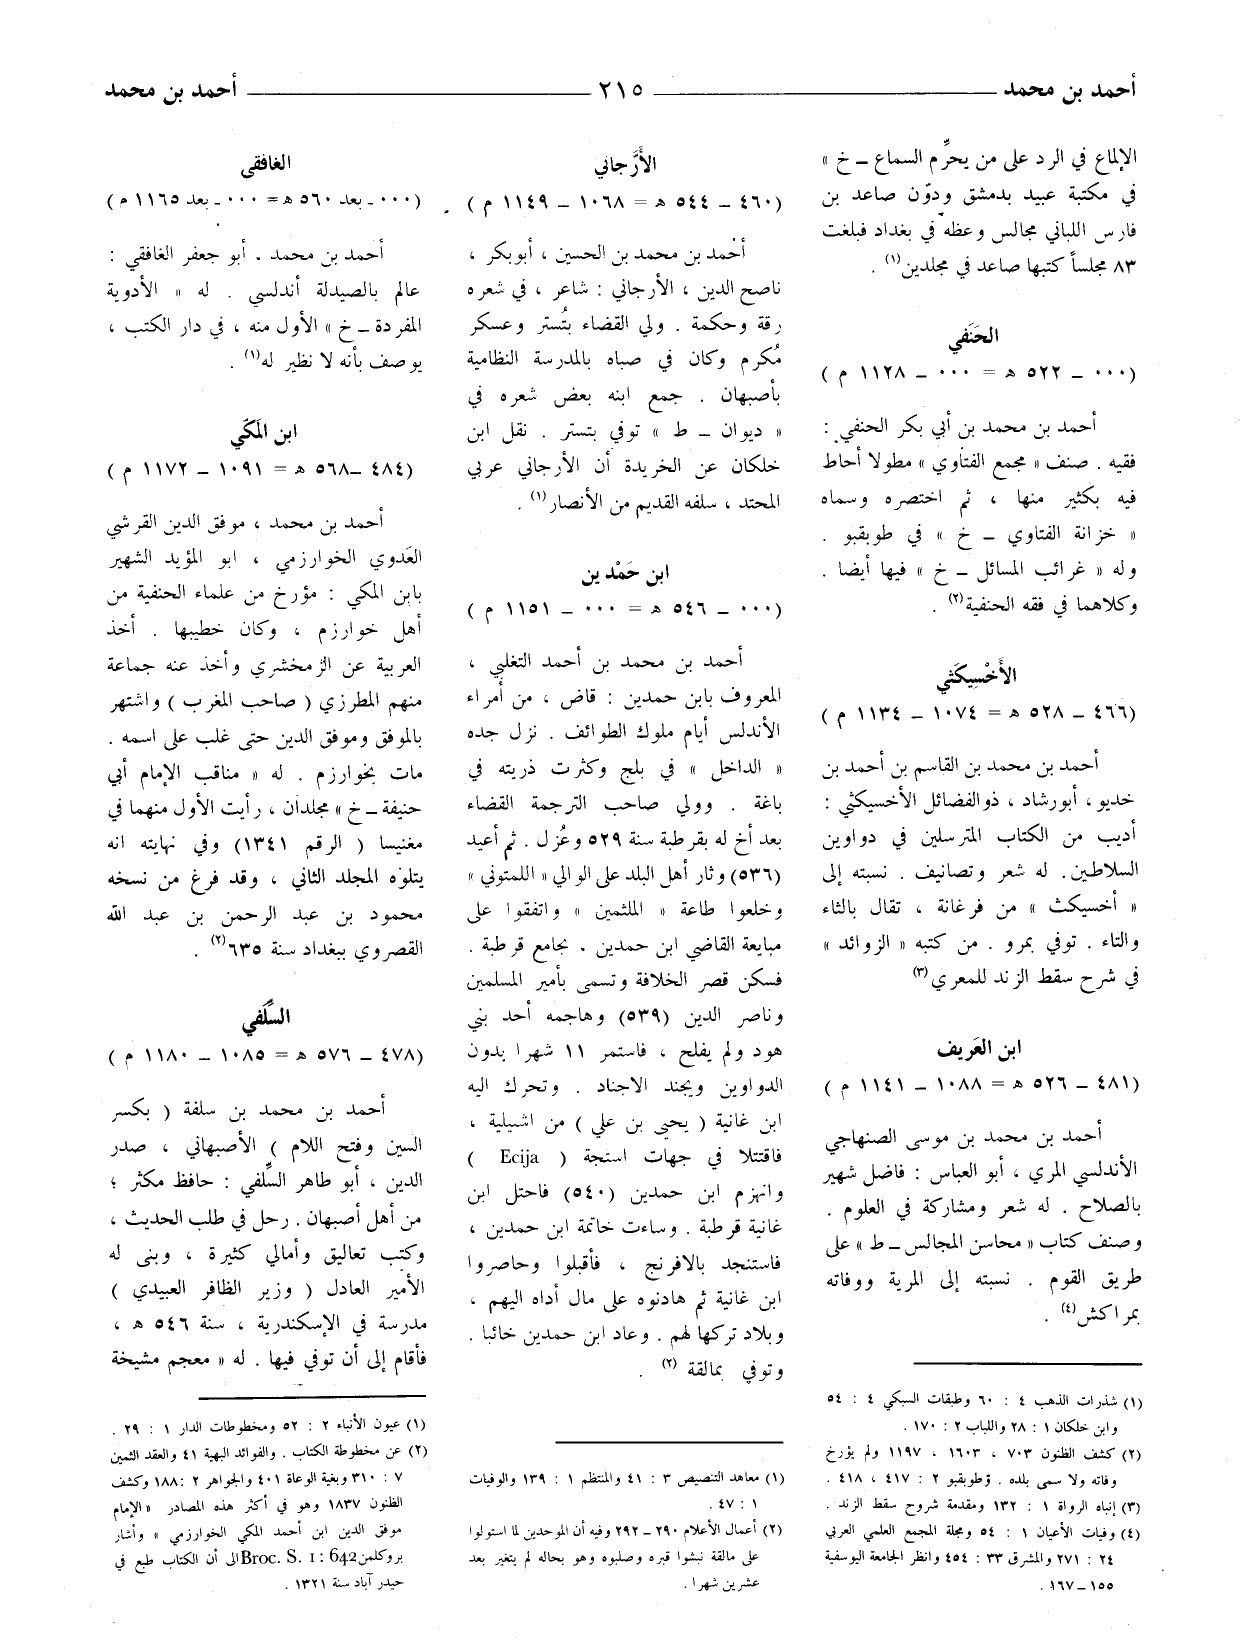 أحمد بن محمد ـــــ ٢١٥ ـــــ أحمد بن محمد
الإلماع في الرد على من يحرِّم السماع ـ خ »
في مكتبة عبيد بدمشق ودوّن صاعد بن
فارس اللباني مجالس وعظه في بغداد فبلغت
٨٣ مجلساً كتبها صاعد في مجلدين(١) .
الحَنَفي
(٠٠٠ ـ ٥٢٢ ه = ٠٠٠ ـ ١١٢٨ م )
أحمد بن محمد بن أبي بكر الحنفي :
فقيه . صنف « مجمع الفتاوي » مطولا أحاط
فيه بكثير منها ، ثم اختصره وسماه
« خزانة الفتاوي ـ خ » في طوبقبو .
وله « غرائب المسائل ـ خ » فيها أيضا .
وكلاهما في فقه الحنفية(٢) .
الأَخْسِيكَثي
(٤٦٦ ـ ٥٢٨ ه = ١٠٧٤ ـ ١١٣٤ م )
أحمد بن محمد بن القاسم بن أحمد بن
خديو ، أبورشاد ، ذوالفضائل الأخسيكثي :
أديب من الكتاب المترسلين في دواوين
السلاطين. له شعر وتصانيف . نسبته إلى
« أخسيكث » من فرغانة ، تقال بالثاء
والتاء . توفي بمرو . من كتبه « الزوائد »
في شرح سقط الزند للمعري(٣)
ابن العَريف
(٤٨١ ـ ٥٢٦ ه = ١٠٨٨ ـ ١١٤١ م )
أحمد بن محمد بن موسى الصنهاجي
الأندلسي المري ، أبو العباس : فاضل شهير
بالصلاح . له شعر ومشاركة في العلوم .
وصنف كتاب « محاسن المجالس ـ ط » على
طريق القوم . نسبته إلى المرية ووفاته
بمراكش(٤) .
(١) شذرات الذهب ٤ : ٦٠ وطبقات السبكي ٤ : ٥٤
وابن خلكان ١ : ٢٨ واللباب ٢ : ١٧٠ .
(٢) كشف الظنون ٧٠٣ ، ١٦٠٣ ، ١١٩٧ ولم يؤرخ
وفاته ولا سمى بلده . وطوبقبو ٢ : ٤١٧ ، ٤١٨ .
(٣) إنباه الرواة ١ : ١٣٢ ومقدمة شروح سقط الزند .
(٤) وفيات الأعيان ١ : ٥٤ ومجلة المجمع العلمي العربي
٢٤ : ٢٧١ والمشرق ٣٣ : ٤٥٤ وانظر الجامعة اليوسفية
١٥٥ ـ ١٦٧ .
الأَرَّجاني
(٤٦٠ ـ ٥٤٤ ه = ١٠٦٨ ـ ١١٤٩ م )
أحمد بن محمد بن الحسين ، أبوبكر ،
ناصح الدين ، الأرجاني : شاعر ، في شعره
رقة وحكمة . ولي القضاء بتُستر وعسكر
مُكرم وكان في صباه بالمدرسة النظامية
بأصبهان . جمع ابنه بعض شعره في
« ديوان ـ ط » توفي بتستر . نقل ابن
خلكان عن الخريدة أن الأرجاني عربي
المحتد ، سلفه القديم من الأنصار(١) .
ابن حَمْدين
(٠٠٠ ـ ٥٤٦ ه = ٠٠٠ ـ ١١٥١ م )
أحمد بن محمد بن أحمد التغلبي ،
المعروف بابن حمدين : قاض ، من أمراء
الأندلس أيام ملوك الطوائف . نزل جده
« الداخل » في بلج وكثرت ذريته في
باغة . وولي صاحب الترجمة القضاء
بعد أخ له بقرطبة سنة ٥٢٩ وعُزل . ثم أعيد
(٥٣٦) وثار أهل البلد على الوالي « اللمتوني »
وخلعوا طاعة « الملثمين » واتفقوا على
مبايعة القاضي ابن حمدين . بجامع قرطبة .
فسكن قصر الخلافة وتسمى بأمير المسلمين
وناصر الدين (٥٣٩) وهاجمه أحد بني
هود ولم يفلح ، فاستمر ١١ شهرا يدون
الدواوين ويجند الاجناد . وتحرك اليه
ابن غانية ( يحيى بن علي ) من اشبيلية ،
فاقتتلا في جهات استجة ( Ecija )
وانهزم ابن حمدين (٥٤٠) فاحتل ابن
غانية قرطبة . وساءت خاتمة ابن حمدين ،
فاستنجد بالافرنج ، فأقبلوا وحاصروا
ابن غانية ثم هادنوه على مال أداه اليهم ،
وبلاد تركها لهم . وعاد ابن حمدين خائبا .
وتوفي بمالقة (٢) .
(١) معاهد التنصيص ٣ : ٤١ والمنتظم ١ : ١٣٩ والوفيات
١ : ٤٧ .
(٢) أعمال الأعلام ٢٩٠ ـ ٢٩٢ وفيه أن الموحدين لما استولوا
على مالقة نبشوا قبره وصلبوه وهو بحاله لم يتغير بعد
عشرين شهرا .
الغافقي
(٠٠٠ ـ بعد ٥٦٠ ه = ٠٠٠ ـ بعد ١١٦٥ م )
أحمد بن محمد . أبو جعفر الغافقي :
عالم بالصيدلة أندلسي . له « الأدوية
المفردة ـ خ » الأول منه ، في دار الكتب ،
يوصف بأنه لا نظير له(١) .
ابن المَكّي
(٤٨٤ ـ ٥٦٨ ه = ١٠٩١ ـ ١١٧٢ م )
أحمد بن محمد ، موفق الدين القرشي
العَدوي الخوارزمي ، ابو المؤيد الشهير
بابن المكي : مؤرخ من علماء الحنفية من
أهل خوارزم ، وكان خطيبها . أخذ
العربية عن الزمخشري وأخذ عنه جماعة
منهم المطرزي ( صاحب المغرب ) واشتهر
بالموفق وموفق الدين حتى غلب على اسمه .
مات بخوارزم . له « مناقب الإمام أبي
حنيفة ـ خ » مجلدان ، رأيت الأول منهما في
مغنيسا ( الرقم ١٣٤١) وفي نهايته انه
يتلوه المجلد الثاني ، وقد فرغ من نسخه
محمود بن عبد الرحمن بن عبد الله
القصروي ببغداد سنة ٦٣٥(٢) .
السِّلَفي
(٤٧٨ ـ ٥٧٦ ه = ١٠٨٥ ـ ١١٨٠ م )
أحمد بن محمد بن سلفة ( بكسر
السين وفتح اللام ) الأصبهاني ، صدر
الدين ، أبو طاهر السِّلَفي : حافظ مكثر ؛
من أهل أصبهان . رحل في طلب الحديث ،
وكتب تعاليق وأمالي كثيرة ، وبنى له
الأمير العادل ( وزير الظافر العبيدي )
مدرسة في الإسكندرية ، سنة ٥٤٦ ه ،
فأقام إلى أن توفي فيها . له « معجم مشيخة
(١) عيون الأنباء ٢ : ٥٢ ومخطوطات الدار ١ : ٢٩ .
(٢) عن مخطوطة الكتاب . والفوائد البهية ٤١ والعقد الثمين
٧ : ٣١٠ وبغية الوعاة ٤٠١ والجواهر ٢ : ١٨٨ وكشف
الظنون ١٨٣٧ وهو في أكثر هذه المصادر «الإمام
موفق الدين ابن أحمد المكي الخوارزمي » وأشار
بروكلمن Broc. S. 1 : 642 الى أن الكتاب طبع في
حيدر آباد سنة ١٣٢١ .